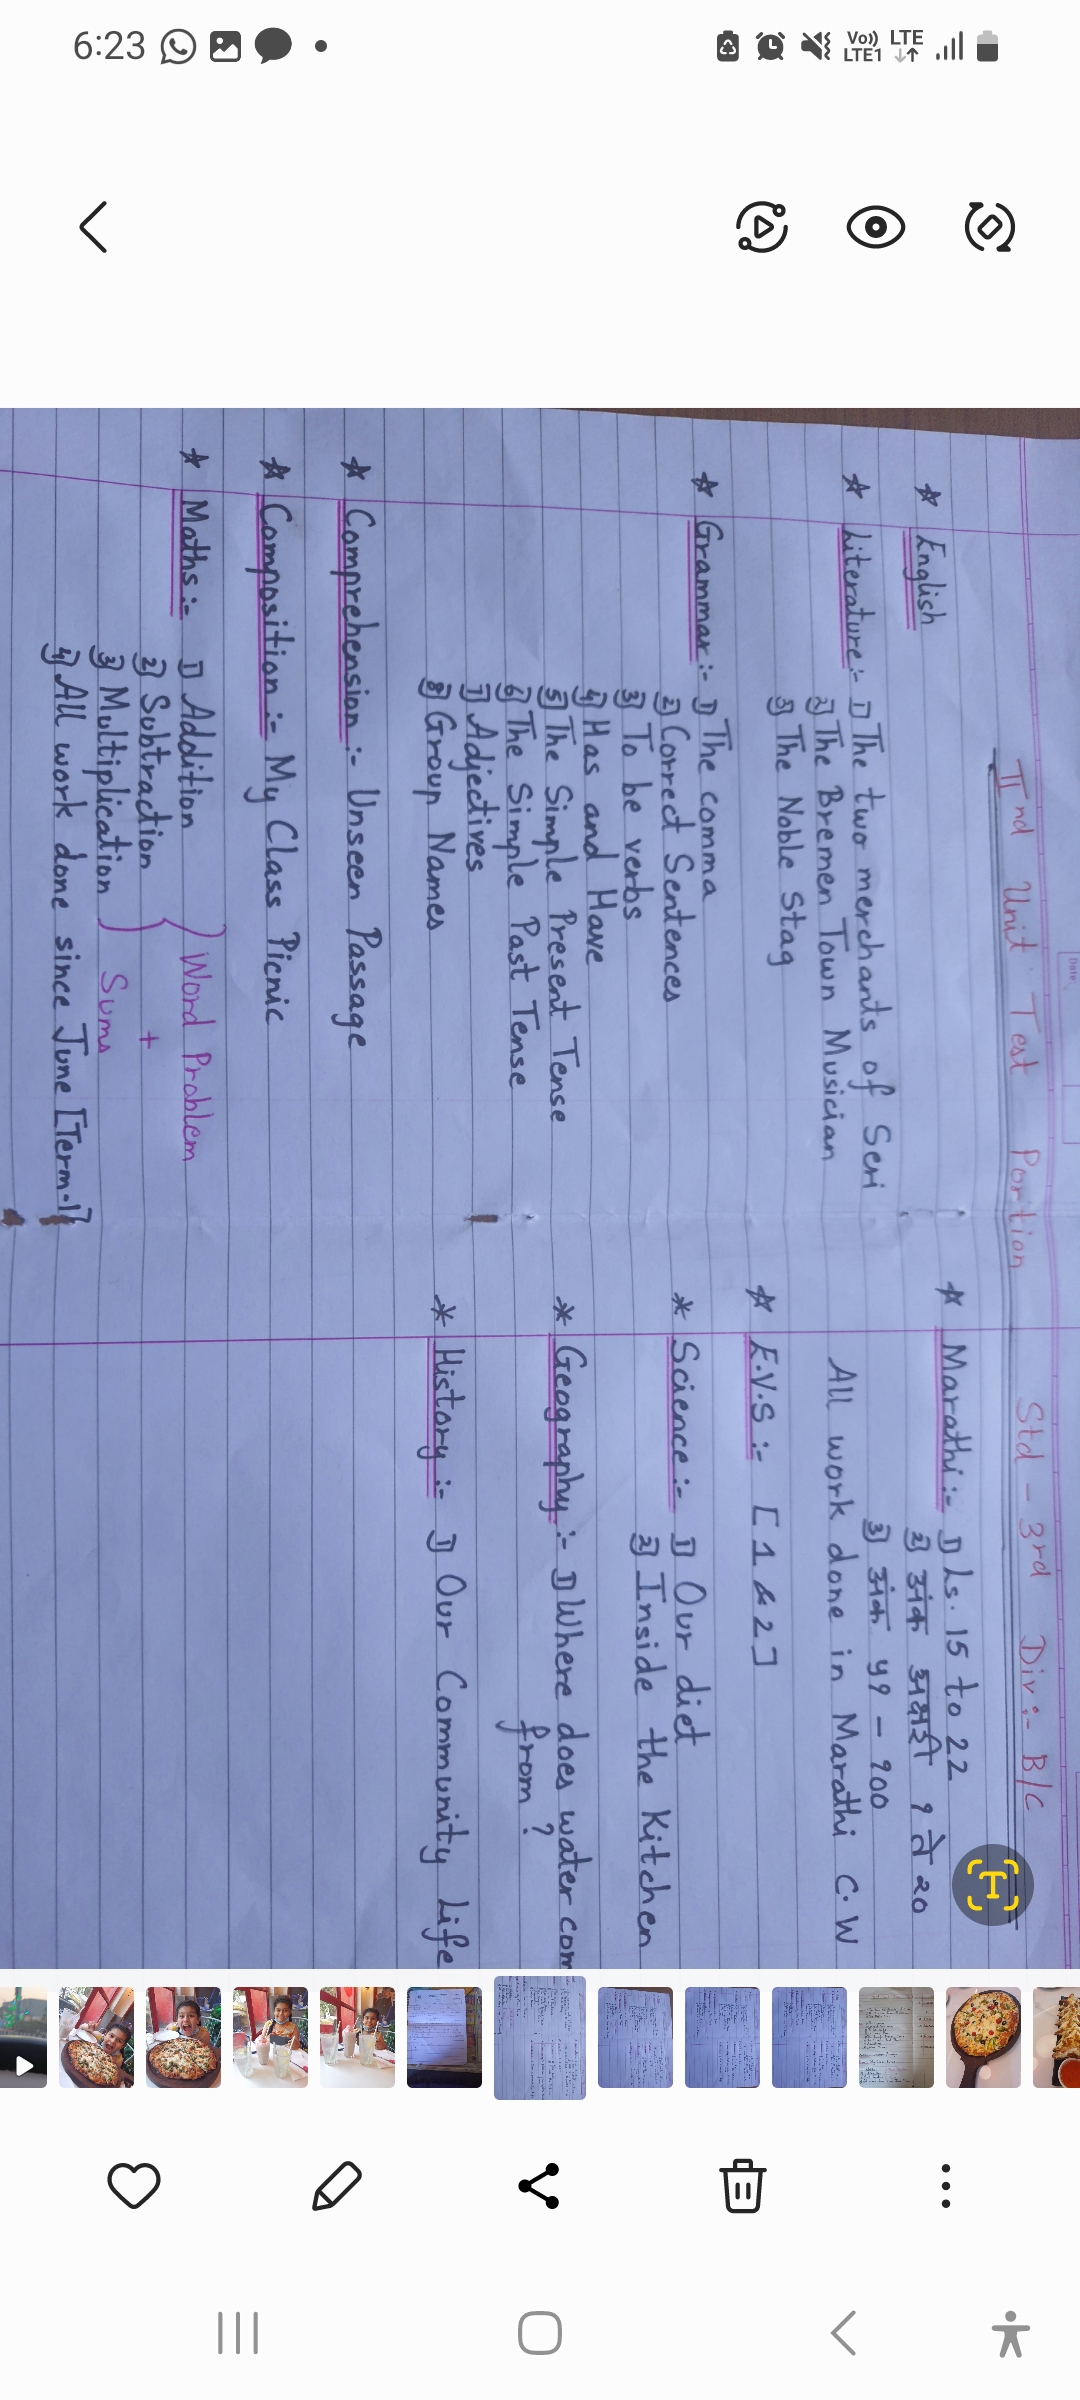 6:23
Vo)) LTE1
LTE
Date
IInd Unit Test Portion Std - 3rd Div:- B/C
* English
* Literature:- 1] The two merchants of Seri
2] The Bremen Town Musician
3] The Noble Stag
* Grammar:- 1] The comma
2] Correct Sentences
3] To be verbs
4] Has and Have
5] The Simple Present Tense
6] The Simple Past Tense
7] Adjectives
8] Group Names
* Comprehension:- Unseen Passage
* Composition:- My Class Picnic
* Maths:- 1] Addition
2] Subtraction
3] Multiplication
Word Problem
+
Sums
4] All work done since June [Term-1]
* Marathi:- 1] Ls. 15 to 22
2] अंक अक्षरी १ ते २०
3] अंक ५१ - १००
All work done in Marathi C.W
* E.V.S:- [1 & 2]
* Science:- 1] Our diet
2] Inside the Kitchen
* Geography:- 1] Where does water com
from ?
* History:- 1] Our Community Life
T